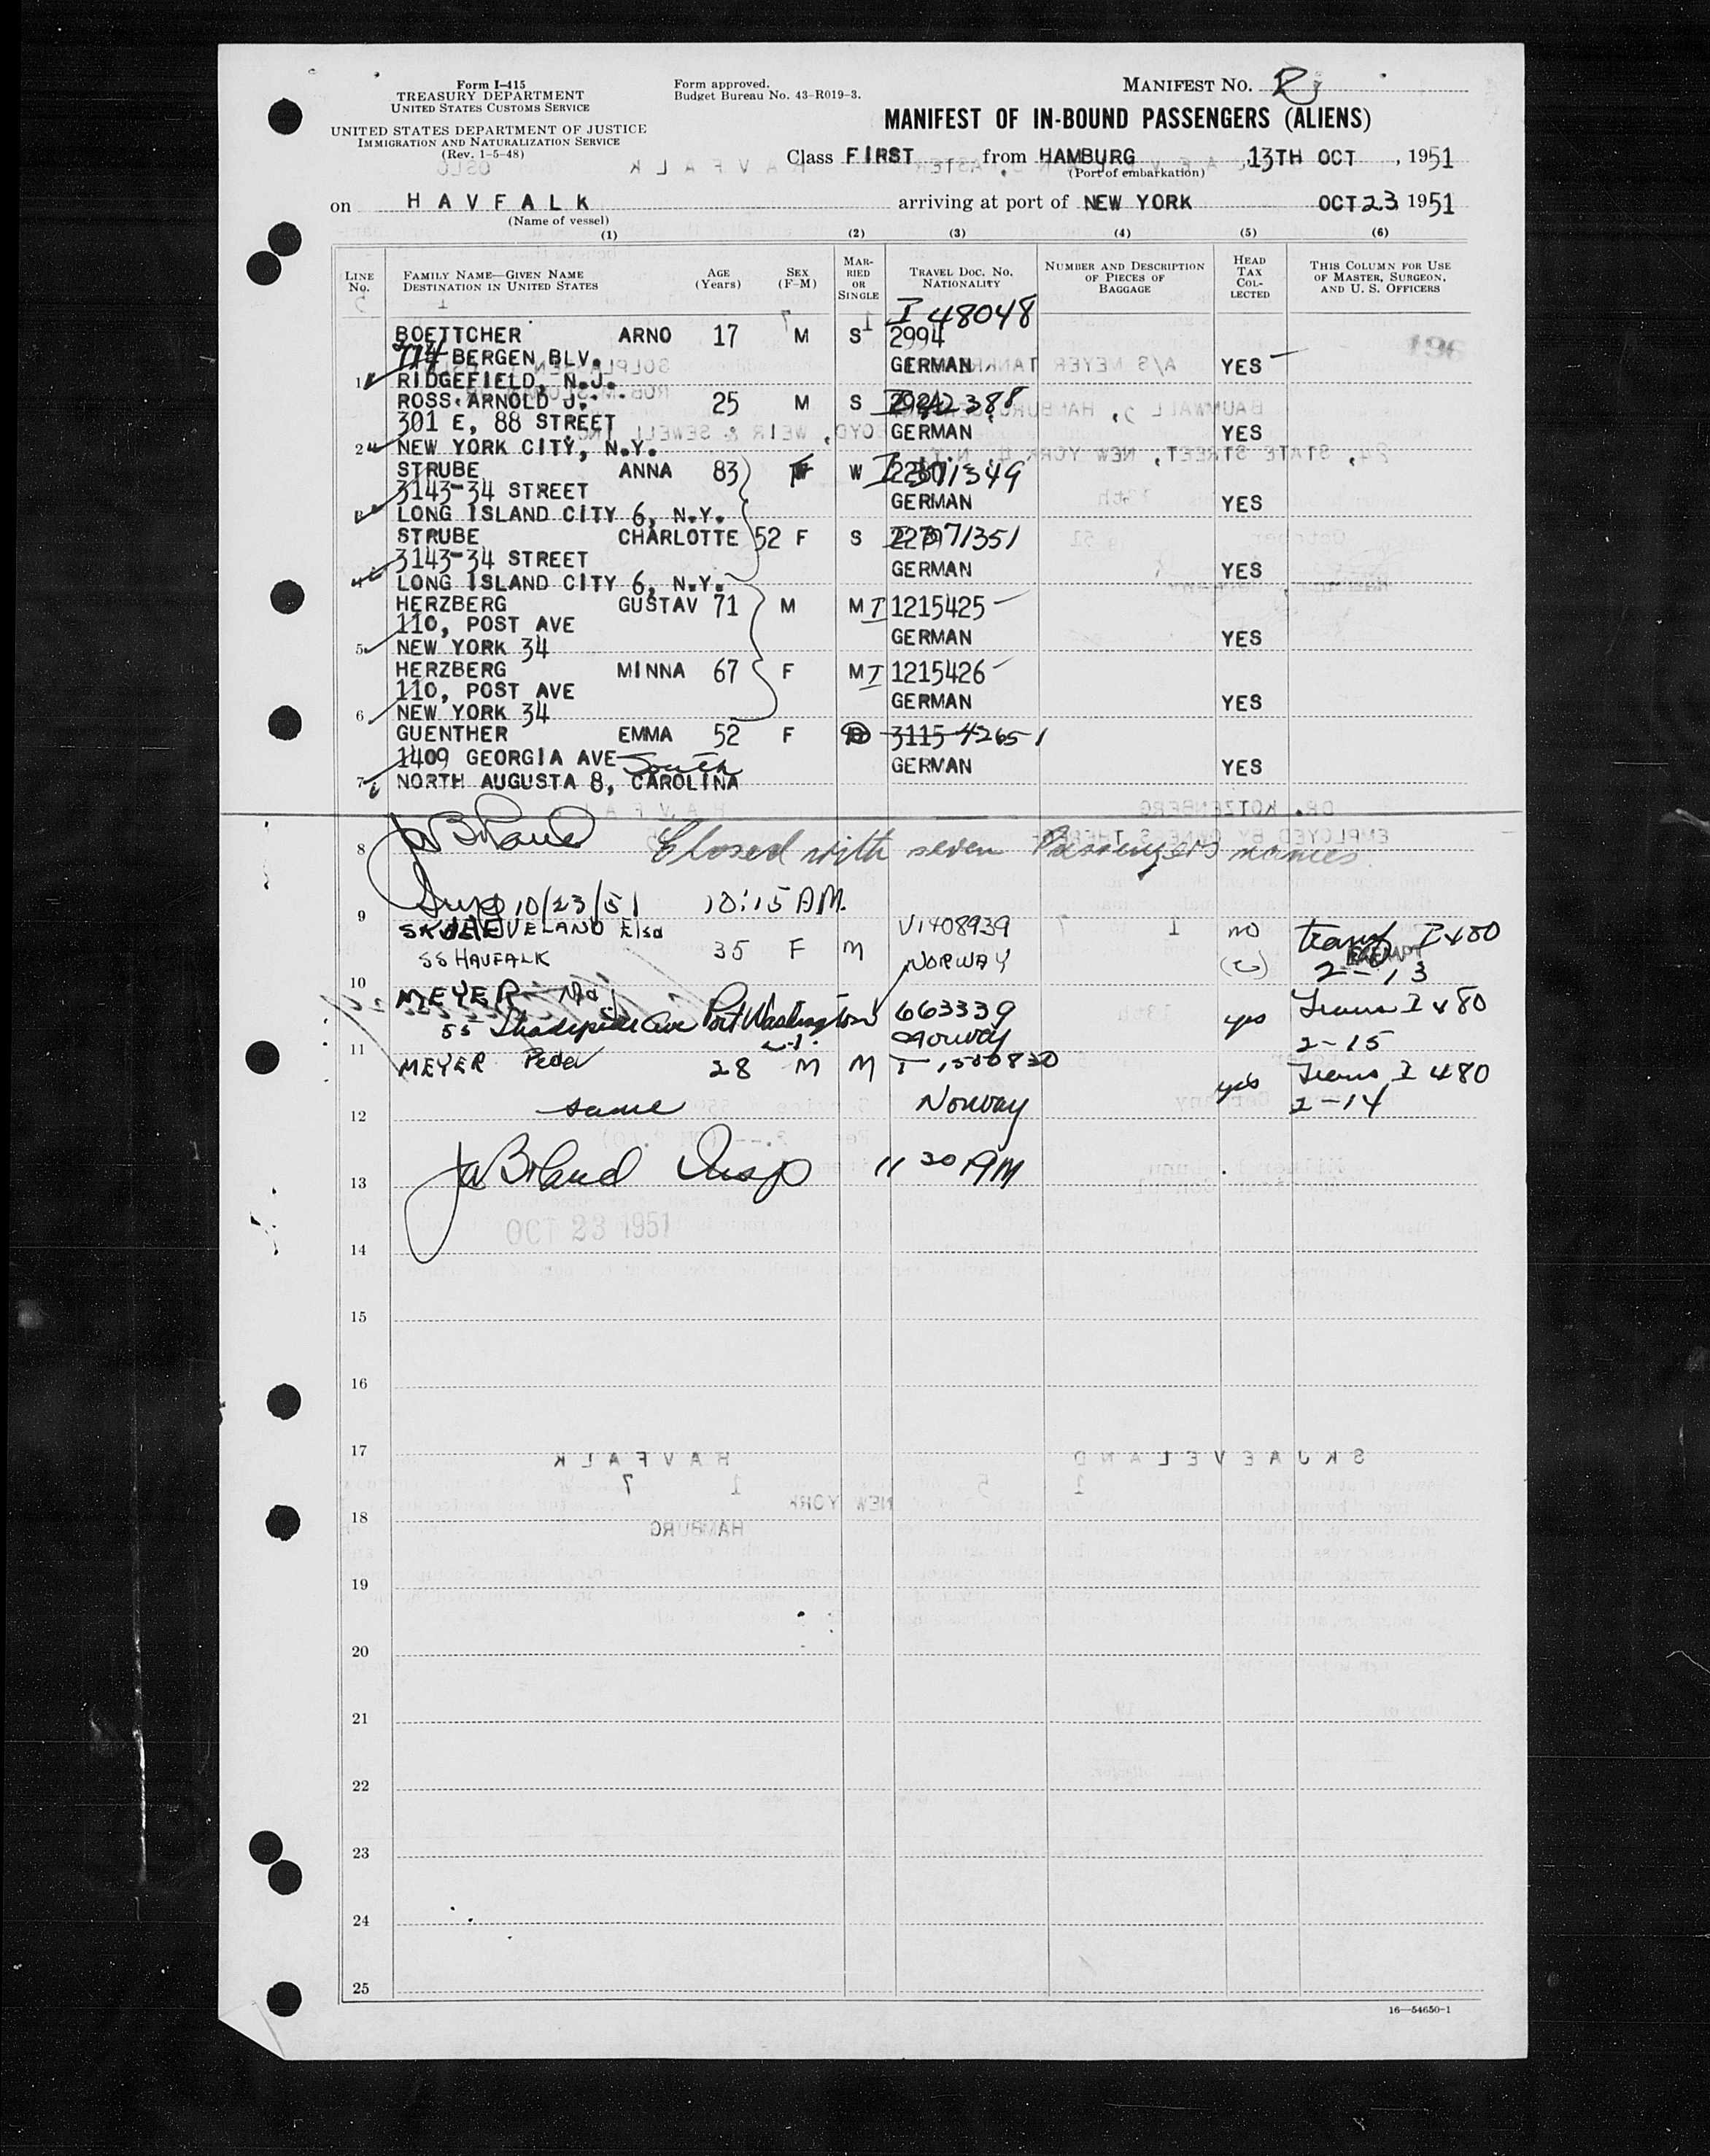 Form I-415
TREASURY DEPARTMENT
UNITED STATES CUSTOMS SERVICE
UNITED STATES DEPARTMENT OF JUSTICE
IMMIGRATION AND NATURALIZATION SERVICE
(Rev. 1-5-48)
Form approved.
Budget Bureau No. 43-R019-3.
MANIFEST NO.
MANIFEST OF IN-BOUND PASSENGERS (ALIENS)
Class FIRST from HAMBURG 13TH OCT, 1951
(Port of embarkation)
on HAVFALK arriving at port of NEW YORK OCT 23 1951
(Name of vessel)
(1) (2) (3) (4) (5) (6)
LINE NO. FAMILY NAME—GIVEN NAME DESTINATION IN UNITED STATES AGE (Years) SEX (F-M) MARRIED OR SINGLE TRAVEL DOC. NO. NATIONALITY NUMBER AND DESCRIPTION OF PIECES OF BAGGAGE HEAD TAX COLLECTED THIS COLUMN FOR USE OF MASTER, SURGEON, AND U. S. OFFICERS
I 48048
BOETTCHER ARNO 17 M S 2994
BERGEN BLV. GERMAN YES
1 RIDGEFIELD, N.J.
ROSS. ARNOLD J. 25 M S
301 E, 88 STREET GERMAN YES
2 NEW YORK CITY, N.Y.
STRUBE ANNA 83 F W
3143-34 STREET GERMAN YES
3 LONG ISLAND CITY 6, N.Y.
STRUBE CHARLOTTE 52 F S
3143-34 STREET GERMAN YES
4 LONG ISLAND CITY 6, N.Y.
HERZBERG GUSTAV 71 M M I 1215425
110, POST AVE GERMAN YES
5 NEW YORK 34
HERZBERG MINNA 67 F M I 1215426
110, POST AVE GERMAN YES
6 NEW YORK 34
GUENTHER EMMA 52 F D 3115 42651
1409 GEORGIA AVE South GERMAN YES
7 NORTH AUGUSTA 8, CAROLINA
8 Closed with seven Passengers names.
9 10/23/51 10:15 AM.
SKJAEVELAND Elsa 35 F M V1408939 no
SS HAVFALK NORWAY EXEMPT
10 2-13
MEYER 663339 yes Trans I 480
55 Ave Port Washington L.I. Norway
11 2-15
MEYER Peder 28 M M yes Trans I 480
12 same Norway 2-14
13 Insp 11 30 AM
OCT 23 1951
14
15
16
17
18
19
20
21
22
23
24
25
16—54650-1